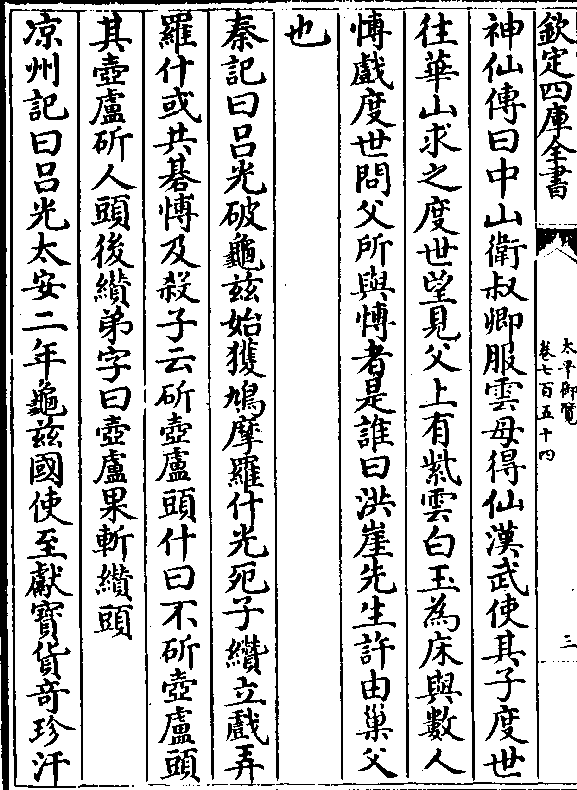 欽定四庫全書
太平御覽
卷七百五十四
三
神仙傳曰中山衛叔卿服雲母得仙漢武使其子度世
往華山求之度世望見父上有紫雲白玉為床與數人
愽戲度世問父所與愽者是誰曰洪崖先生許由巢父
也
秦記曰吕光破龜兹始獲鳩摩羅什光死子纘立戲弄
羅什或共碁愽及殺子云斫壺盧頭什曰不斫壺盧頭
其壺盧斫人頭後纘弟字曰壺盧果斬纘頭
凉州記曰吕光太安二年龜兹國使至獻寳貨奇珍汗